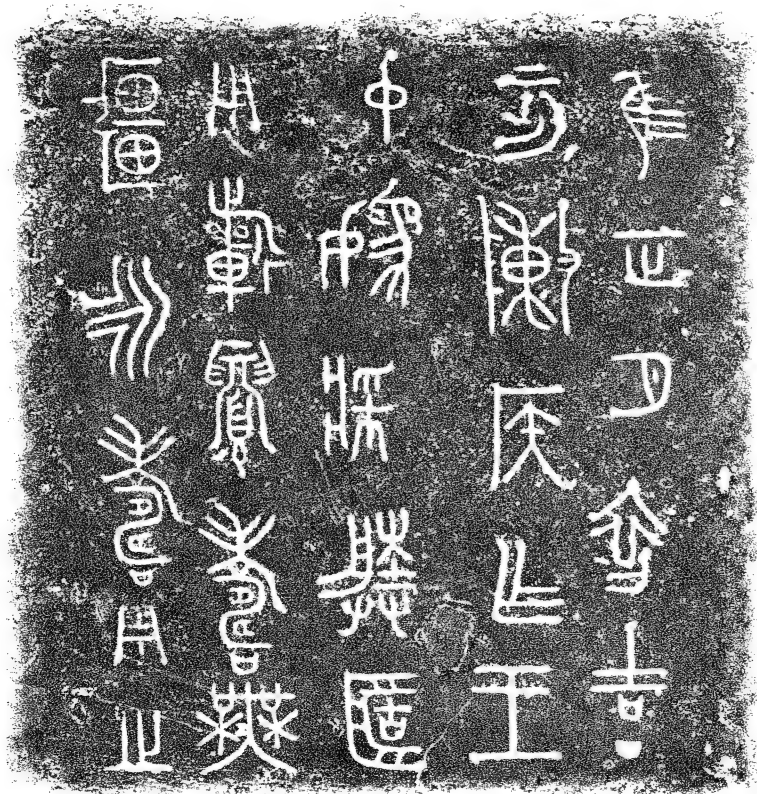 隹正月初吉丁
亥陳侯乍王
中媯媵簠
用祈眉壽無
疆永壽用之